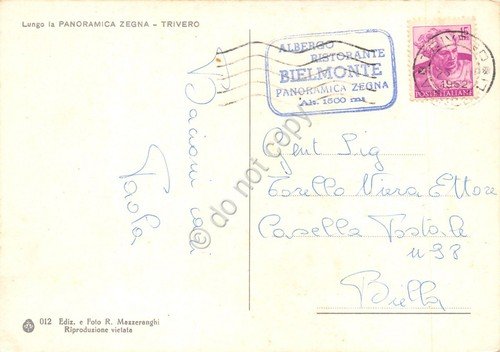 Lungo la PANORAMICA ZEGNA - TRIVERO
ALBERGO
RISTORANTE
BIELMONTE
PANORAMICA ZEGNA
Alt. 1500 mt.
£15
1962
POSTE ITALIANE
Bacioni cari
Paola
Gent Sig
Torello Viera Ettore
Casella Postale
n 98
Biella
do not copy
012 Ediz. e Foto R. Mazzerenghi
Riproduzione vietata